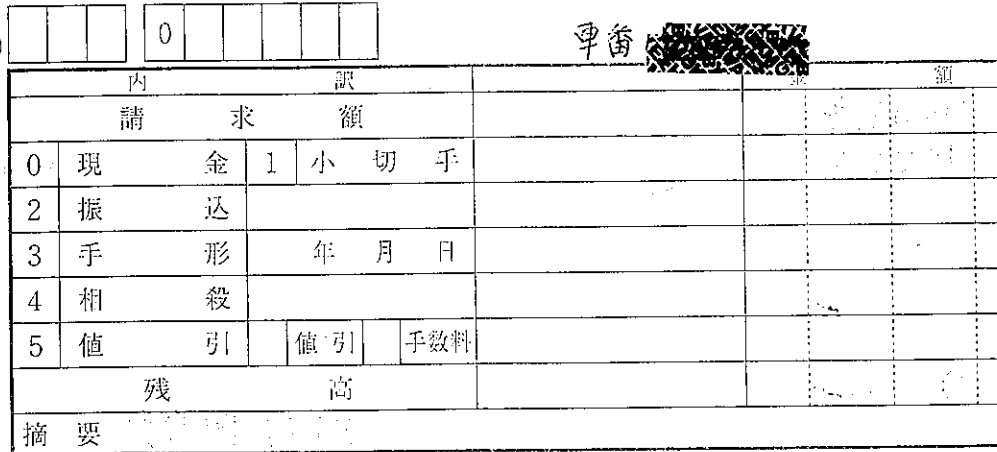 0 車番
内訳 金額
請求額
0 現金 1 小切手
2 振込
3 手形 年 月 日
4 相殺
5 値引 値引 手数料
残高
摘要